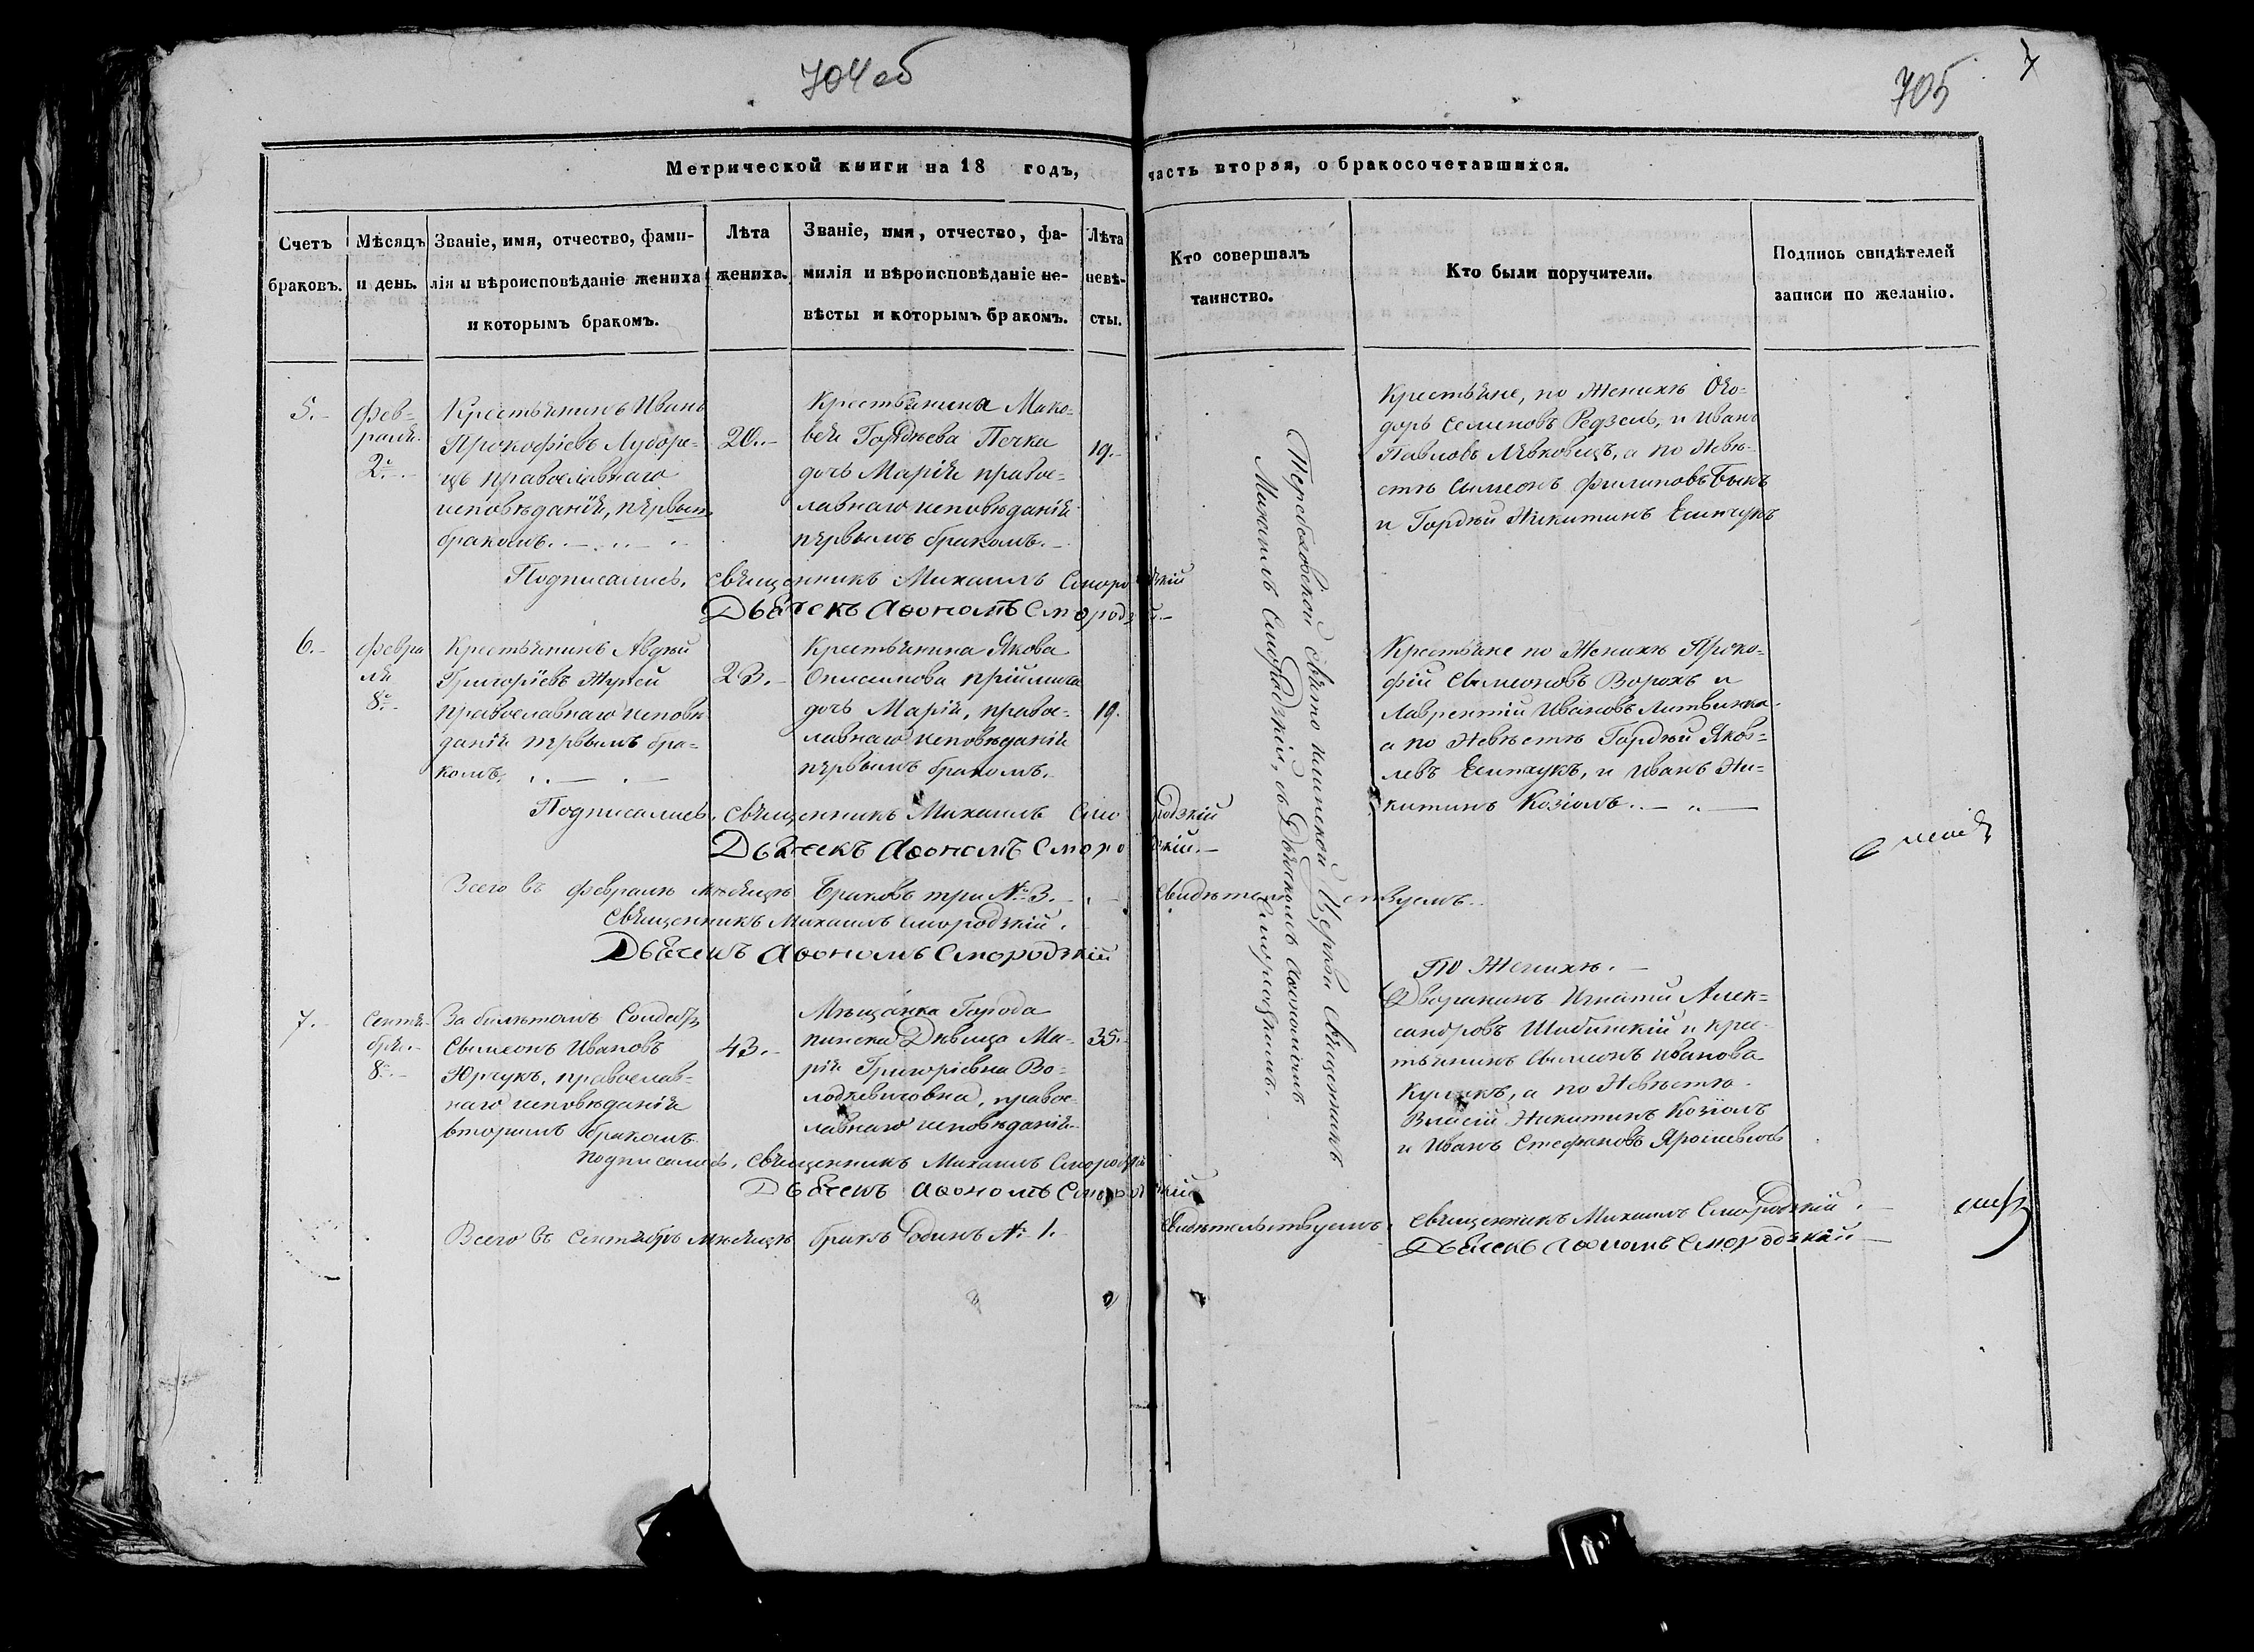 704 об
705
7
Метрической книги на 18 годъ, часть вторая, о бракосочетавшихся.
Счетъ браковъ.
Мѣсяцъ и день.
Званіе, имя, отчество, фами-
лія и вѣроисповѣданіе жениха
и которымъ бракомъ.
Лѣта
жениха.
Званіе, имя, отчество, фа-
милія и вѣроисповѣданіе не-
вѣсты и которымъ бракомъ.
Лѣта
невѣ-
сты.
Кто совершалъ
таинство.
Кто были поручители.
Подпись свидѣтелей
записи по желанію.
5.
Фев-
раля
2.
Крестьянинъ Иванъ
Прокофіевъ
православнаго
исповѣданія, первымъ
бракомъ.
20.
Крестьянина Мако-
вея Гордѣева Печка
дочь Марія право-
славнаго исповѣданія
первымъ бракомъ.
19.
Крестьяне, по Женихѣ Ѳео-
доръ Семеновъ Редзель, и Иванъ
Павловъ Левковецъ, а по Невѣ-
стѣ Симеонъ Филиповъ Быкъ
и Гордѣй Никитинъ
Подписались, Священникъ Михаилъ Смородзкій
Дьячекъ Аѳономъ Смородзкій
Перебховской Свято Ильинской Церкви Священникъ
Михаилъ Смородзкій, съ Дьячкомъ Аѳономомъ
Смородзкимъ.
6.
Февра
ля
8.
Крестьянинъ Авдѣй
Григоріевъ Жулей
православнаго исповѣ
данія первымъ бра-
комъ,
23.
Крестьянина Якова
Прійміока
дочь Марія, право-
славнаго исповѣданія
первымъ бракомъ.
19.
Крестьяне по Женихѣ Проко-
фій Симеоновъ Ворохъ и
Лаврентій Ивановъ Литвинка
а по Невѣстѣ Гордѣй Яков-
левъ и Иванъ Ни-
китинъ Козіолъ.
Подписались, Священникъ Михаилъ Смородзкій
Дьячекъ Аѳономъ Смородзкій.
Всего въ Февралѣ мѣсяцѣ Браковъ три № 3. Свидѣтельствуемъ.
Священникъ Михаилъ Смородзкій.
Дьячекъ Аѳономъ Смородзкій
7.
Сентя-
бря.
8.
За билетомъ Солдатъ
Симеонъ Ивановъ
Юрчукъ, православ-
наго исповѣданія
вторымъ бракомъ.
43.
Мѣщанка Города
Пинска Дѣвица Ма-
рія Григоріевна Во-
лодкевичовна, право-
славнаго исповѣданія.
35.
По Женихѣ.
Дворянинъ Игнатій Алек-
сандровъ Шабинскій и Крес-
тьянинъ Симеонъ Иванова
Куликъ, а по Невѣстѣ
Власій Никитинъ Козіолъ
и Иванъ Стефановъ Ярошевичъ
Подписались, Священникъ Михаилъ Смородзкій
Дьячекъ Аѳономъ Смородзкій
Всего въ Сентябрѣ Мѣсяцѣ бракъ Одинъ № 1. Свидѣтельствуемъ, Священникъ Михаилъ Смородзкій.
Дьячекъ Аѳономъ Смородзкій